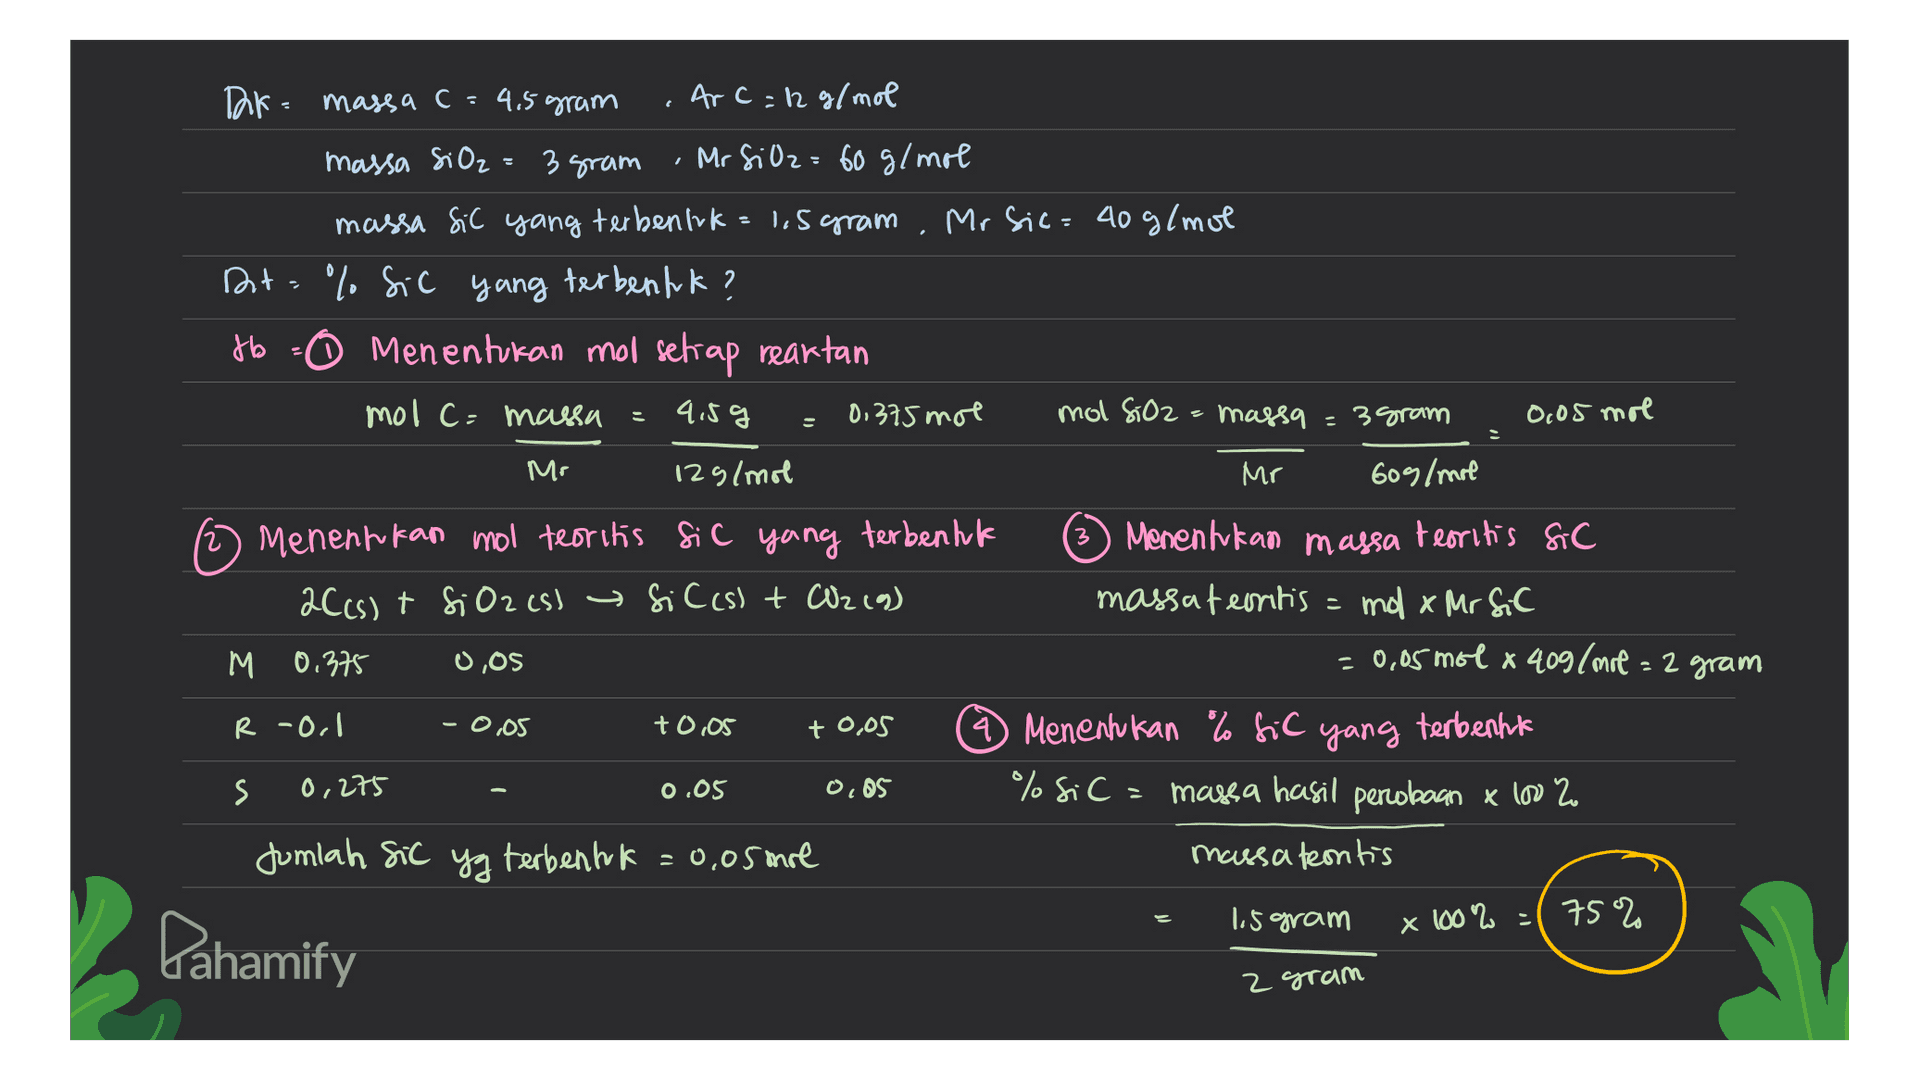 Dik = massa C = 4.5 gram , Ar C = 12 g/mol
massa SiO2 = 3 gram , Mr SiO2 = 60 g/mol
massa SiC yang terbentuk = 1,5 gram , Mr SiC = 40 g/mol
Dit = % SiC yang terbentuk ?
Jb = ① Menentukan mol setiap reaktan
mol C = massa / Mr = 4,5 g / 12 g/mol = 0,375 mol
mol SiO2 = massa / Mr = 3 gram / 60 g/mol = 0,05 mol
② Menentukan mol teoritis SiC yang terbentuk
2C(s) + SiO2(s) → SiC(s) + CO2(g)
M 0.375 0,05
R -0,1 -0,05 +0,05 +0,05
S 0,275 - 0.05 0,05
Jumlah SiC yg terbentuk = 0,05 mol
③ Menentukan massa teoritis SiC
massa teoritis = mol x Mr SiC
= 0,05 mol x 40 g/mol = 2 gram
④ Menentukan % SiC yang terbentuk
% SiC = massa hasil percobaan / massa teoritis x 100 %
= 1.5 gram / 2 gram x 100 % = 75 %
Pahamify